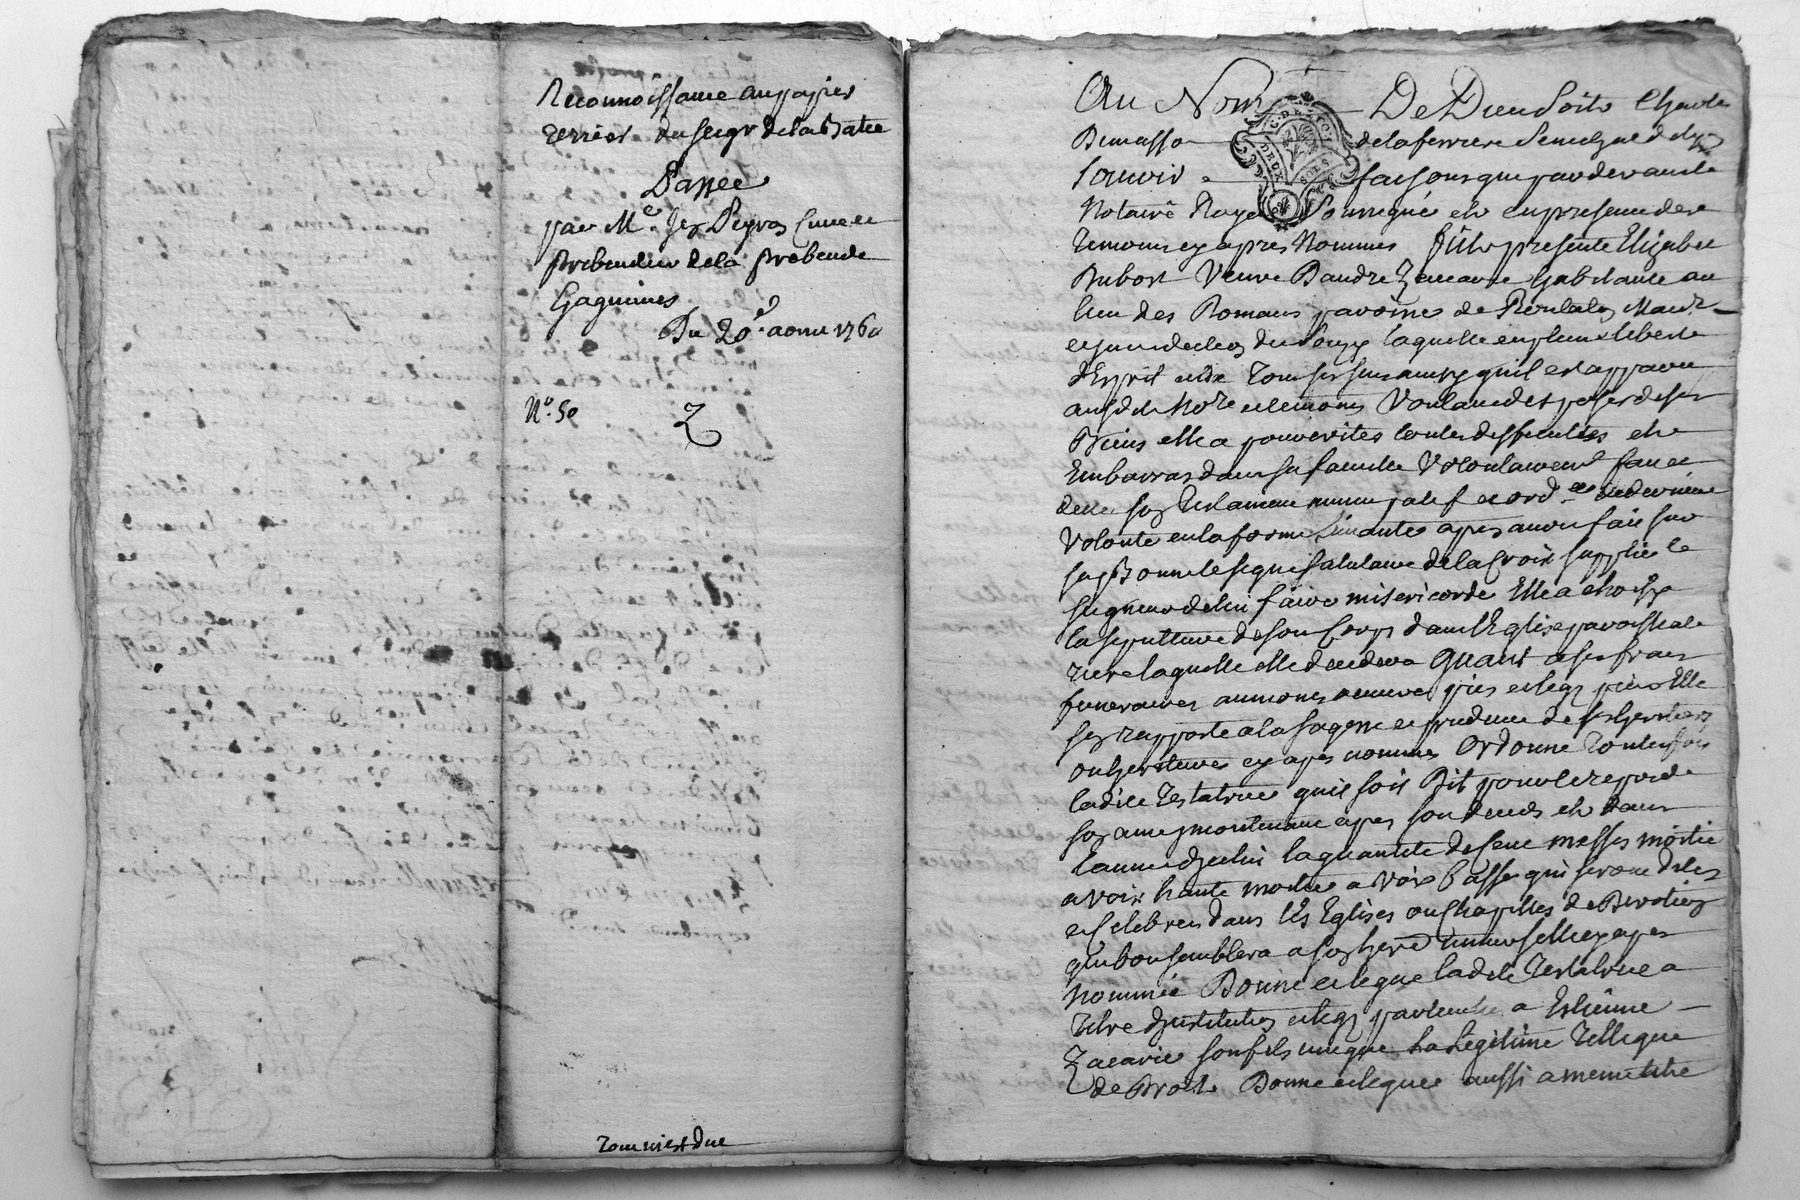 Reconnoissance au papier
terrier du seigr de la Batie
Passée
par Me. Jex Peyron Curé et
prebendier de la prebende
Gaguiines
Du 20e. aoust 1760
No. 50
Tout m'est due
Au Nom De Dieu Soit Charles
Dumasso de la ferriere Senechal de ly
Sauvoir faisons que par devant le
Notaire Royal Soussigné et en presence des
Temoins cy apres Nommes fut presente Elizabet
Dubost Veuve D'andre Zacarie habitante au
lieu des Romans paroisse de Mandt
et jurisdiction du laquelle en pleine liberte
d'Esprit et de Tous ses sens ainsy qu'il est apparu
audt Nore et temoins Voulant disposer de ses
Biens elle a pour eviter toutes difficultes et
Embarras dans sa famille Volontairement fait et
dicte son Testament nuncupatif et ordre de derniere
Volonté en la forme suivante apres avoir fait sur
sa personne le signe salutaire de la Croix supplié le
seigneur de lui faire misericorde Elle a choisy
la sepulture de son Corps dans l'Eglise paroissiale
riere laquelle elle decedera Quant a ses frais
funeraires aumones oeuvres pies et legs pieux Elle
s'en rapporte a la sagesse et prudence de ses heritiers
ou heritieres cy apres nommes Ordonne Toutesfois
ladite Testatrice qu'il soit Dit pour le repos de
son ame immediatement apres son deceds et dans
l'année d'jcelui la quantite de Cent messes moitié
a voix haute moitie a voix basse qui seront dites
et Celebrees dans les Eglises ou Chapelles de
que bon semblera a son hered universelle cy apres
Nommée Donne et legue ladite Testatrice a
Titre d'institution et legs particulier a Estienne
Zacarie son fils unique La Legitime Telle que
de Droit Donne et legue aussi a meme titre